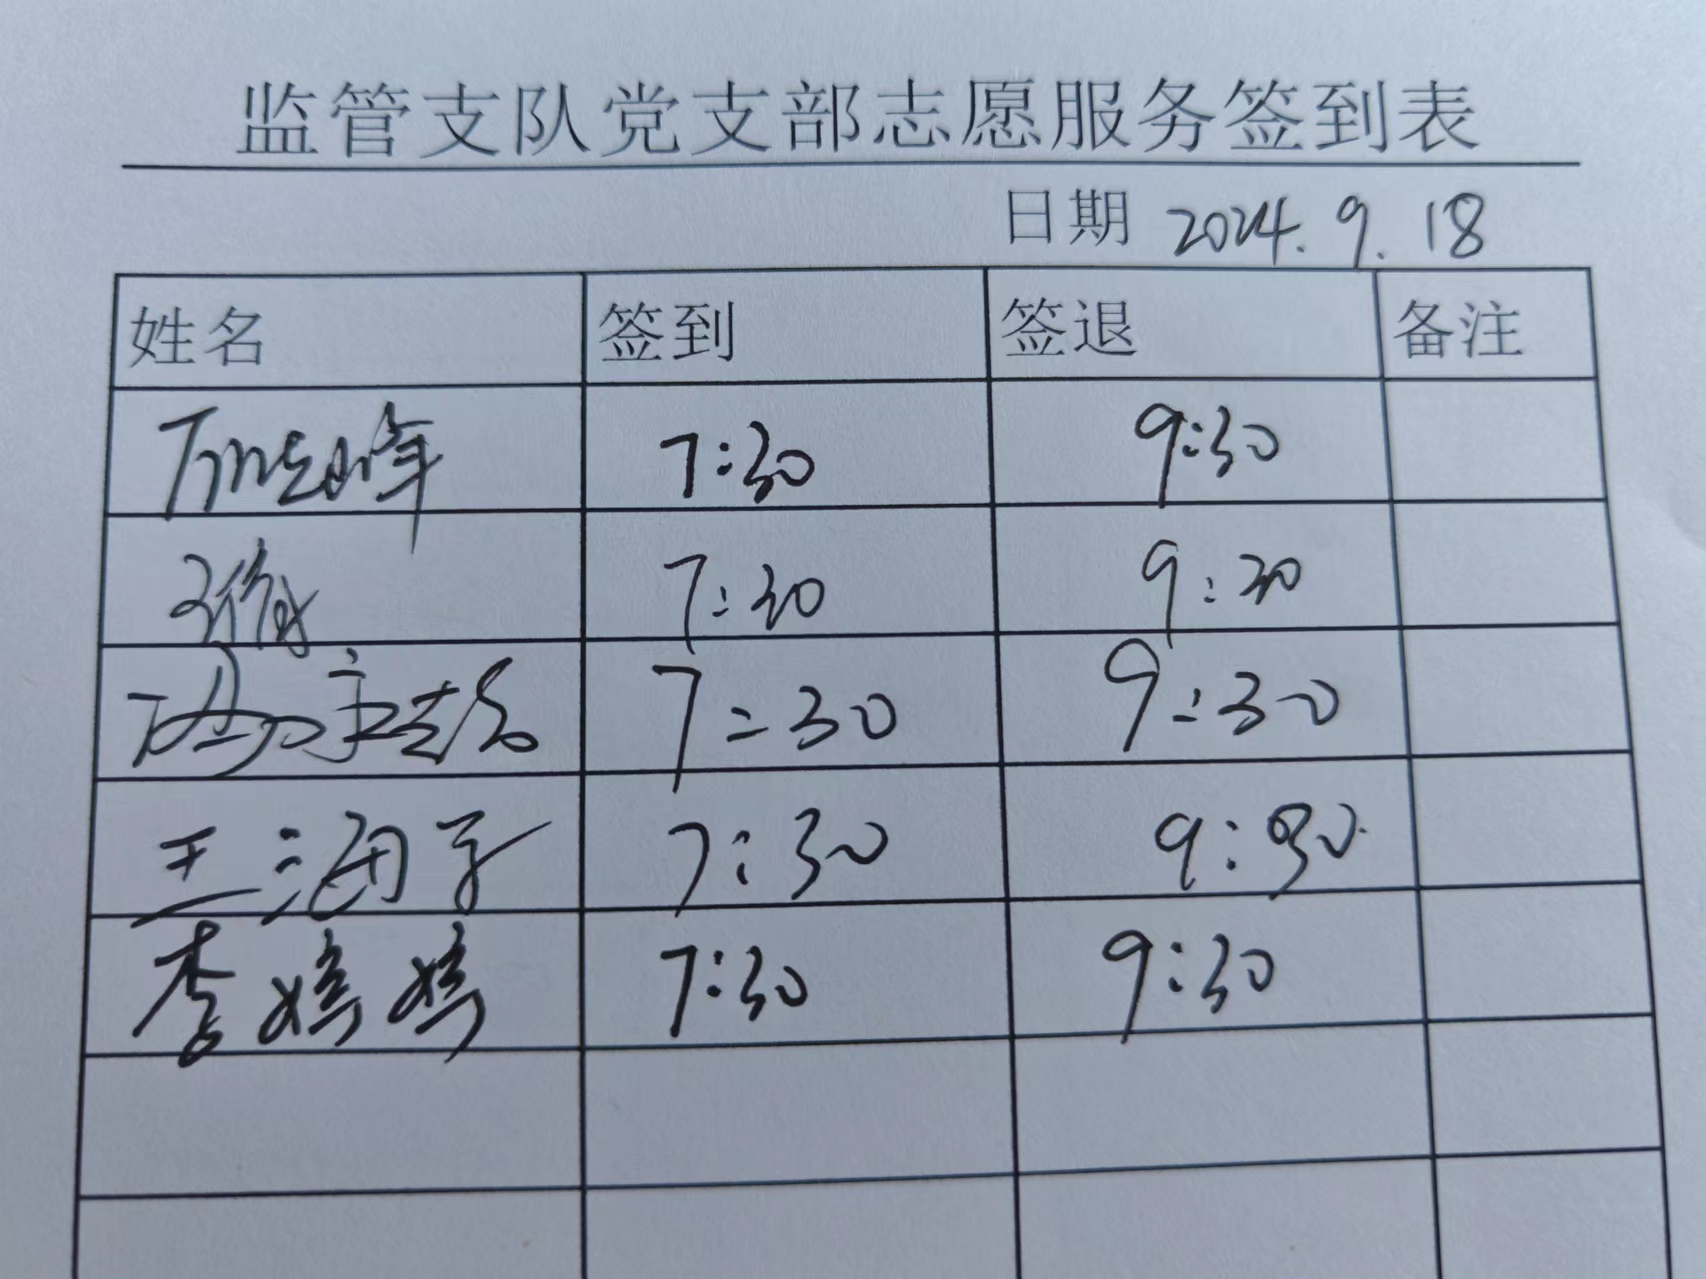 监管支队党支部志愿服务签到表
日期 2024.9.18
姓名 签到 签退 备注
7:30 9:30
7:30 9:30
7:30 9:30
王海舟子 7:30 9:30
李婷婷 7:30 9:30